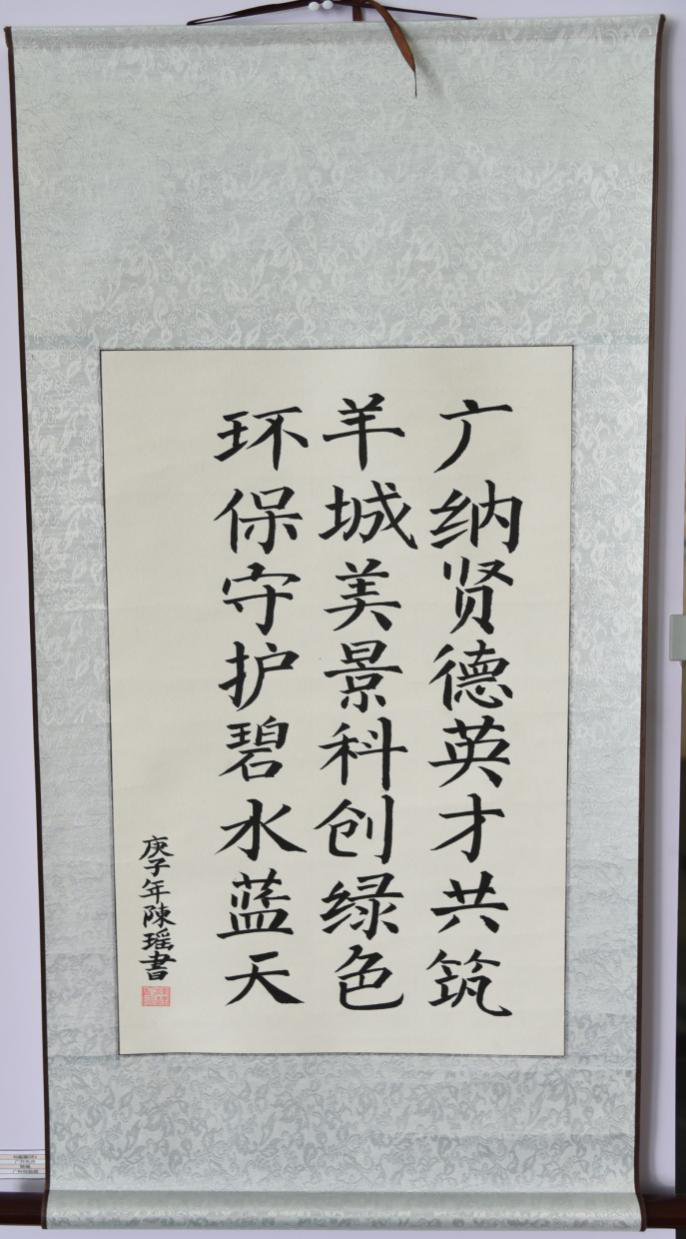 广纳贤德英才共筑
羊城美景科创绿色
环保守护碧水蓝天
庚子年陳瑶書